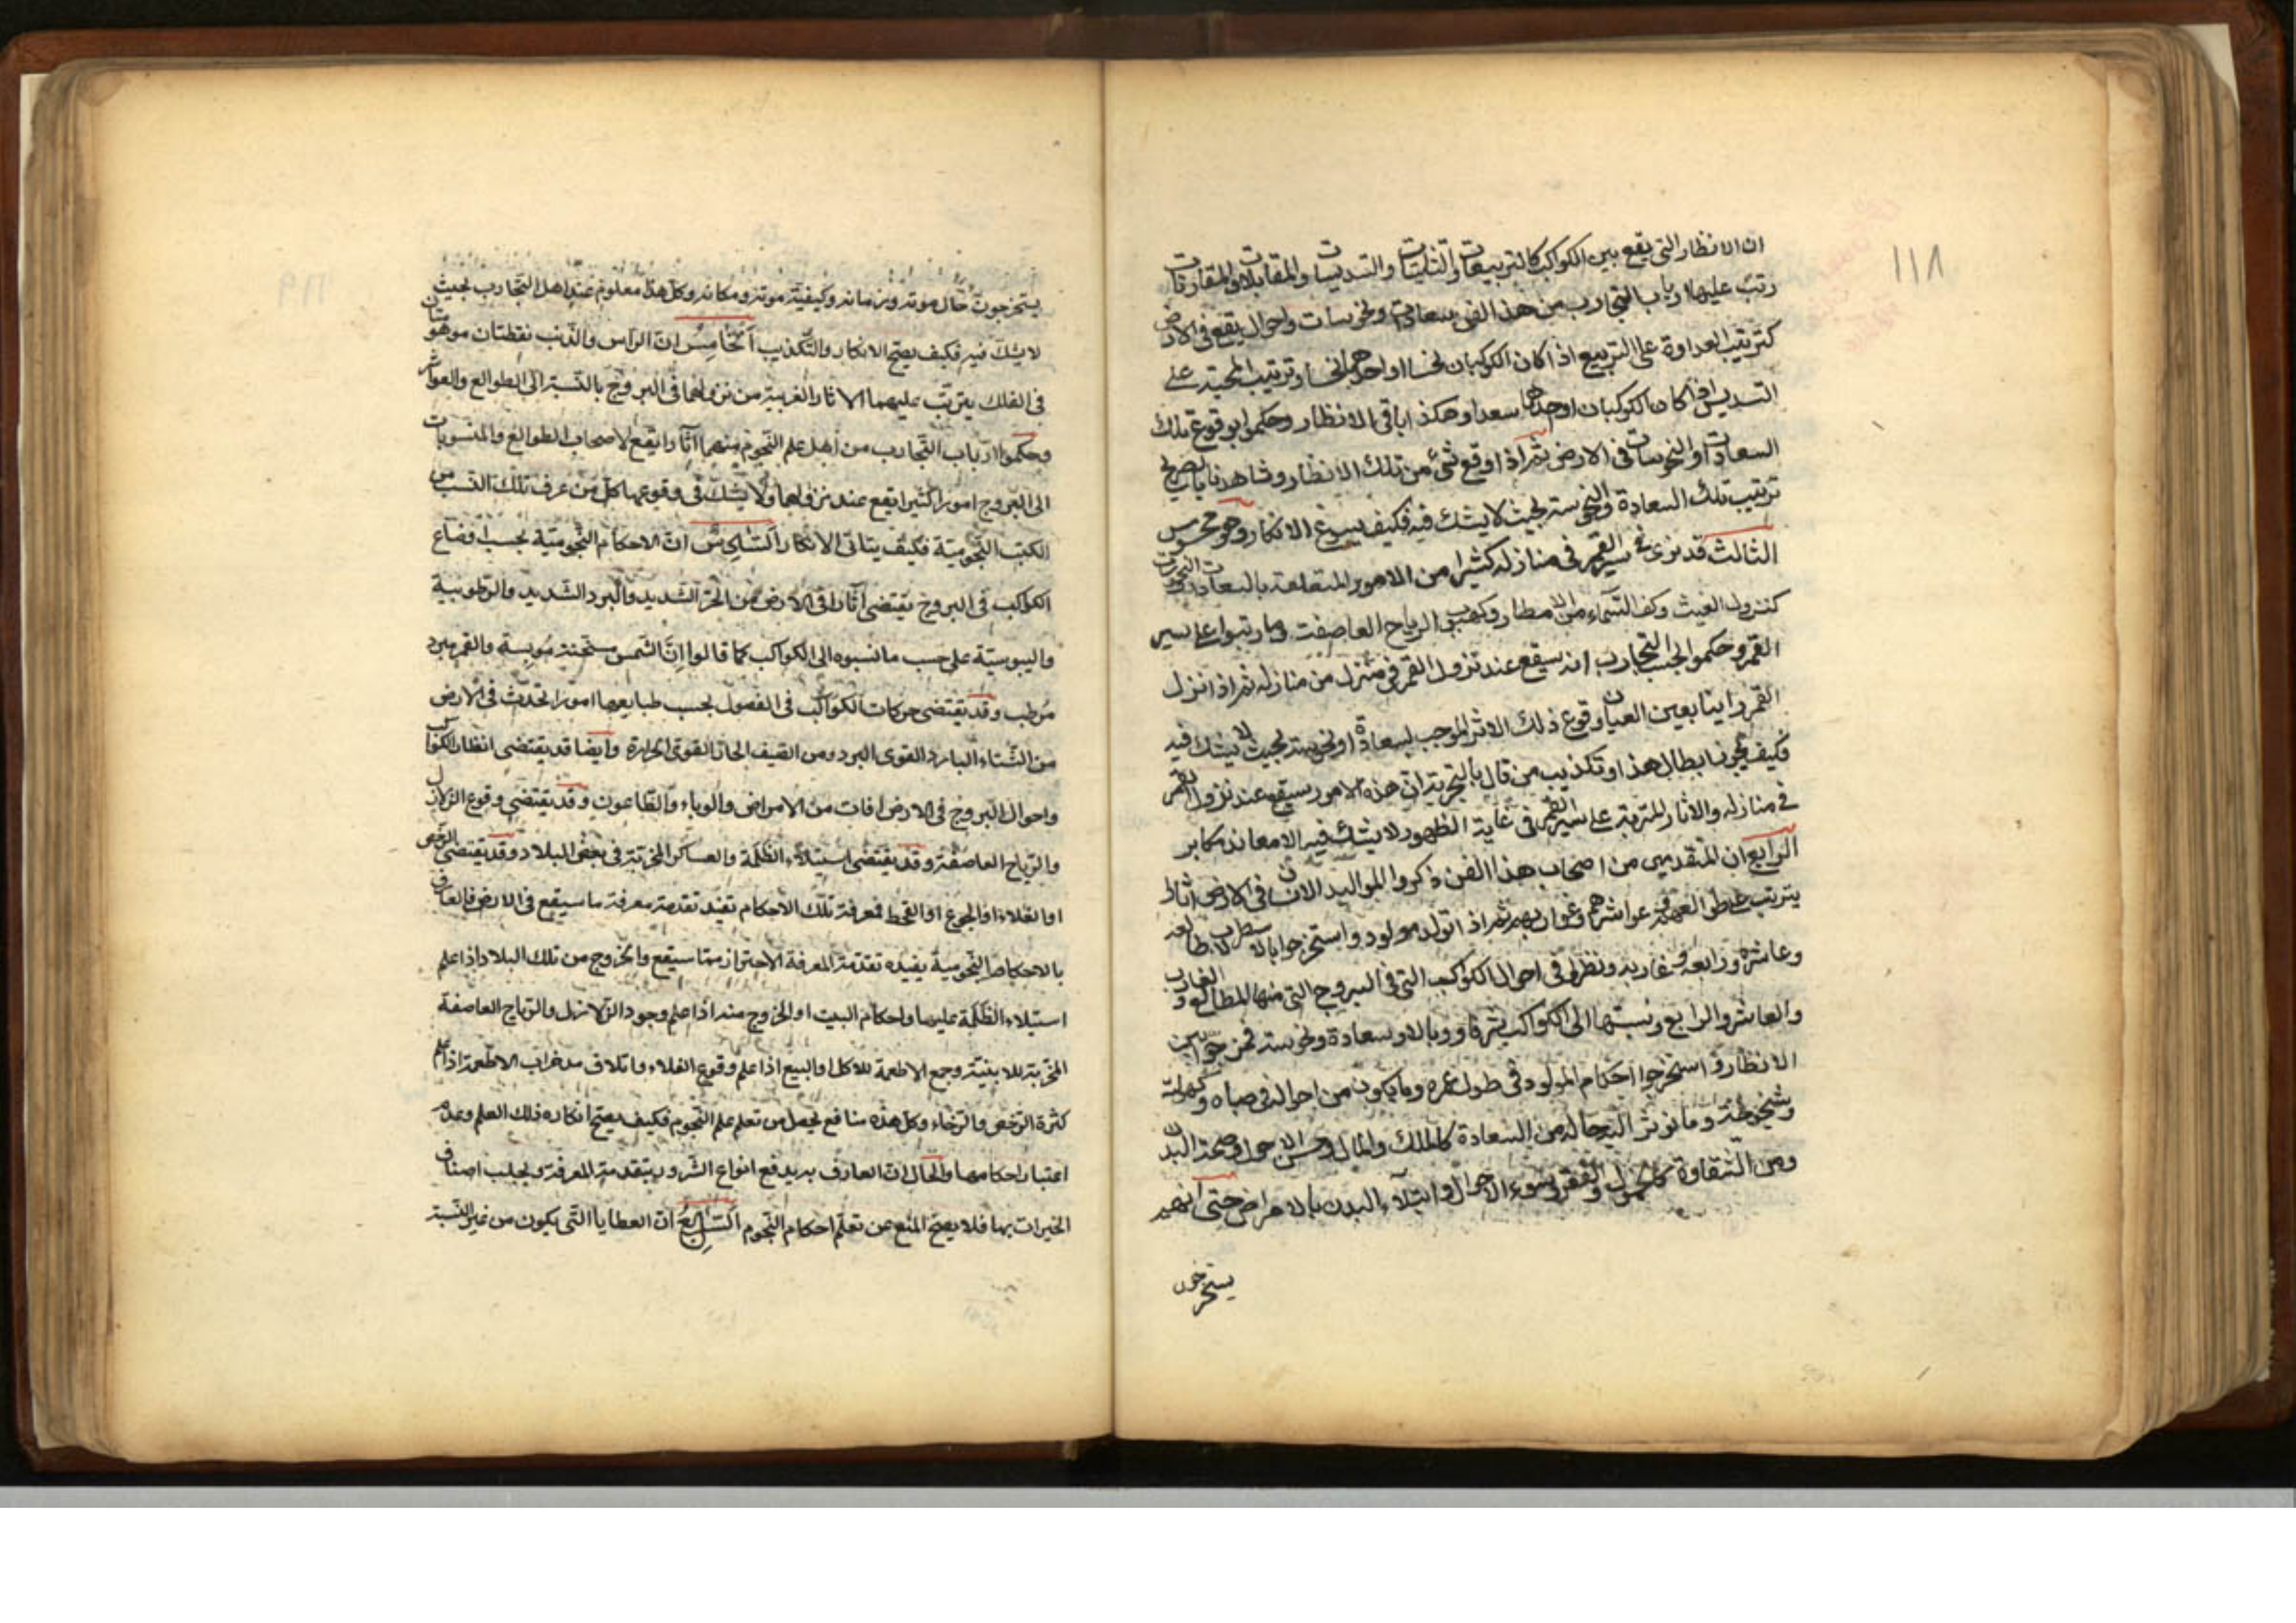 ١١٨
ان الانظار التى يقع بين الكواكب كالتربيعات والتثليثات والتسديسات والمقابلات والمقارنات
رتب عليها ارباب التجارب من هذا الفن سعادات ونحوسات واحوال يقع فى الارض
كترتيب العداوة على التربيع اذا كان الكوكبان نحسا او احدهما نحسا وترتيب المحبة على
التسديس اذا كان الكوكبان او احدهما سعدا وهكذا باقى الانظار وحكموا بوقوع تلك
السعادات او النحوسات فى الارض ثم اذا وقع شئ من تلك الانظار وشاهدنا
ترتيب تلك السعادة والنحوسة بحيث لا يشك فيه فكيف يسوغ الانكار وهو محسوس
الثالث قد نرى فى سير القمر فى منازله كثيرا من الامور المتعلقة بالسعادات
كنزول الغيث وكف السماء من الامطار وكهبوب الرياح العاصفة وما رتبوا على سير
القمر وحكموا بحسب التجارب انه سيقع عند نزول القمر فى منزل من منازله ثم اذا نزل
القمر راينا بعين العيان وقوع ذلك الاثر الموجب لسعادة او نحوسة بحيث لا يشك فيه
فكيف يجوز ابطال هذا وتكذيب من قال بالتجربة ان هذه الامور سيقع عند نزول القمر
فى منازله والاثار المترتبة على سير القمر فى غاية الظهور لا يشك فيه الا معاند مكابر
الرابع ان المتقدمين من اصحاب هذا الفن ذكروا لمواليد الانسان فى الارض اثارا
يترتب على طوالعهم وعواشرهم وغواربهم ثم اذا تولد مولود واستخرجوا بالاسطرلاب طالعه
وعاشره ورابعه وغاربه ونظروا فى احوال الكواكب التى فى البروج التى منها الطالع والغارب
والعاشر والرابع ونسبتها الى الكواكب شرفا ووبالا وسعادة ونحوسة فمن
الانظار استخرجوا احكام المولود فى طول عمره وما يكون من احواله فى صباه وكهولته
وشيخوخته وما نوثر اليه حاله من السعادة كالملك والمال وحسن الاحوال وصحة البدن
ومن الشقاوة كالخمول والفقر وسوء الاحوال وابتلاء البدن بالامراض حتى انهم
يستخرجون
١١٩
يستخرجون حال موته وزمانه وكيفية موته ومكانه وكل هذا معلوم عند اهل التجارب بحيث
لا يشك فيه فكيف يصح الانكار والتكذيب الخامس ان الراس والذنب نقطتان موهومتان
فى الفلك يترتب عليهما الاثار الغريبة من نزولهما فى البروج بالنسبة الى الطوالع والعواشر
وحكموا ارباب التجارب من اهل علم النجوم منهما اثارا يقع لاصحاب الطوالع والمنسوبات
الى البروج امورا كثيرا يقع عند نزولهما ولا يشك فى وقوعها كل من عرف تلك النسب من
الكتب النجومية فكيف يتاتى الانكار السادس ان الاحكام النجومية بحسب اوضاع
الكواكب فى البروج يقتضى آثارا فى الارض من الحر الشديد والبرد الشديد والرطوبية
واليبوسية على حسب ما نسبوه الى الكواكب كما قالوا ان الشمس مسخنة ميبسة والقمر مبرد
مرطب وقد يقتضى حركات الكواكب فى الفصول بحسب طبايعها امورا تحدث فى الارض
من الشتاء البارد القوى البرد ومن الصيف الحار القوى الحرارة وايضا قد يقتضى انظار الكواكب
واحوال البروج فى الارض افات من الامراض والوباء والطاعون وقد يقتضى وقوع الزلازل
والرياح العاصفة وقد يقتضى استيلاء الظلمة والعساكر المخربة فى بعض البلاد وقد يقتضى الرخص
او الغلاء او الجوع او القحط فمعرفة تلك الاحكام تفيد تقدمة معرفة ما سيقع فى الارض فالعارف
بالاحكام النجومية يفيده تقدمة المعرفة الاحتراز مما سيقع والخروج من تلك البلاد اذا علم
استيلاء الظلمة عليها واحكام البيت او الخروج منه اذا علم وجود الزلازل والرياح العاصفة
المخربة للابنية وجمع الاطعمة للاكل او البيع اذا علم وقوع الغلاء واتلاف مدخرات الاطعمة اذا علم
كثرة الرخص والرخاء وكل هذه منافع يحصل من تعلم علم النجوم فكيف يصح انكار ذلك العلم وعدم
اعتبار احكامها والحال ان العارف بها يدفع انواع الشرور بتقدمة المعرفة ويجلب اصناف
الخيرات بها فلا يصح المنع عن تعلم احكام النجوم السابع ان العطايا التى يكون من غير النسبة